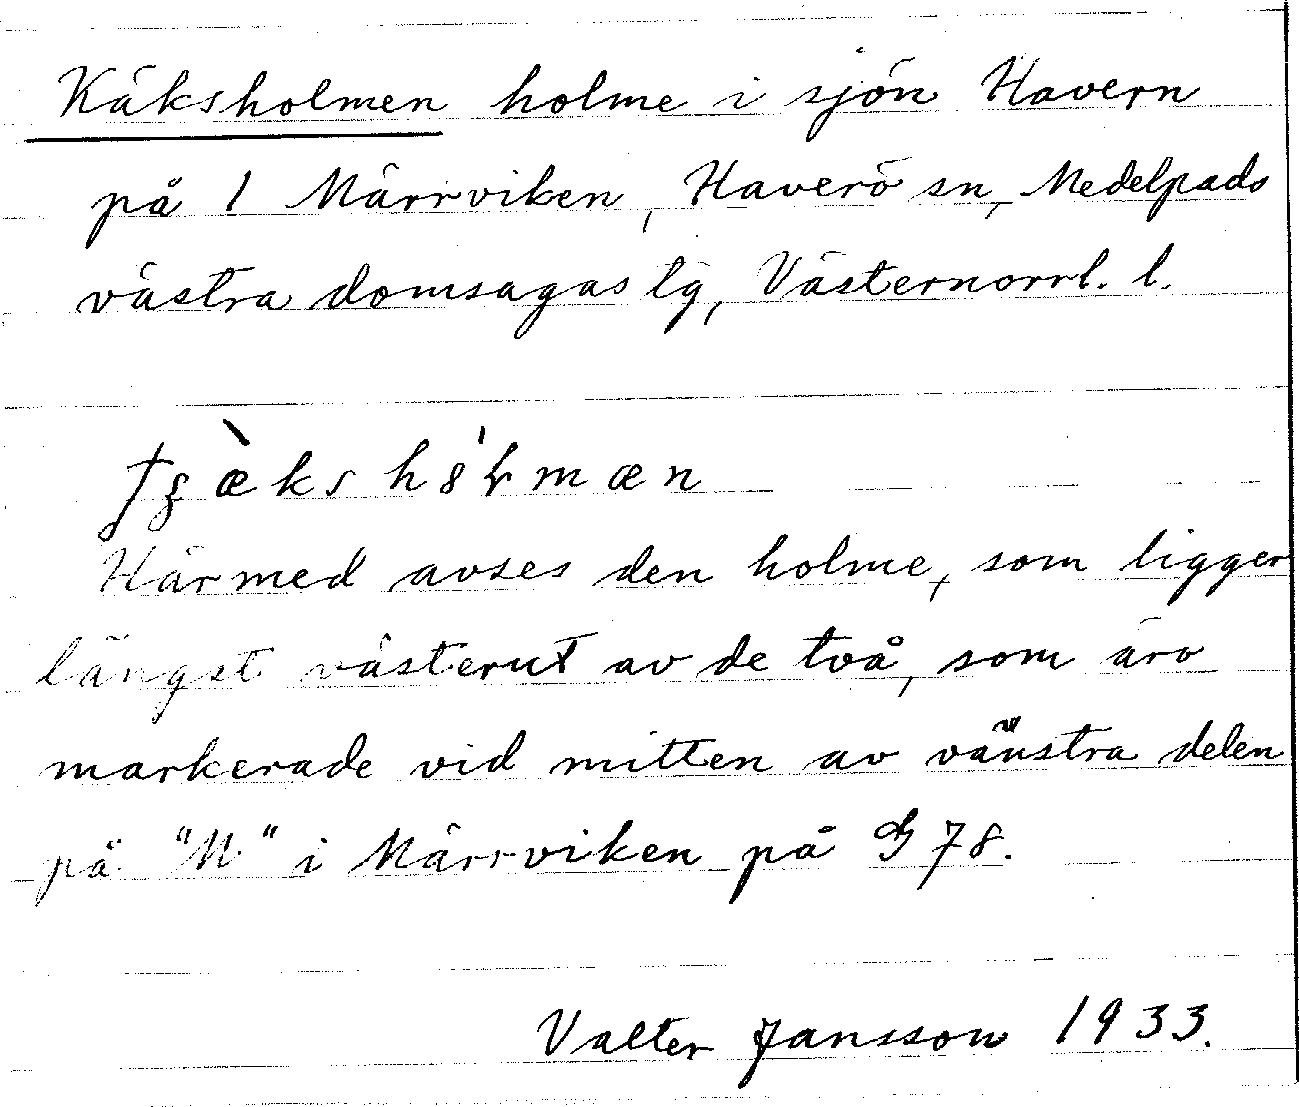 Käksholmen holme i sjön Havern
på 1 Märrviken, Haverö sn, Medelpads
västra domsagas tg, Västernorrl. l.
Härmed avses den holme, som ligger
längst västerut av de två, som äro
markerade vid mitten av vänstra delen
på "M" i Märrviken på G 78.
Valter Jansson 1933.